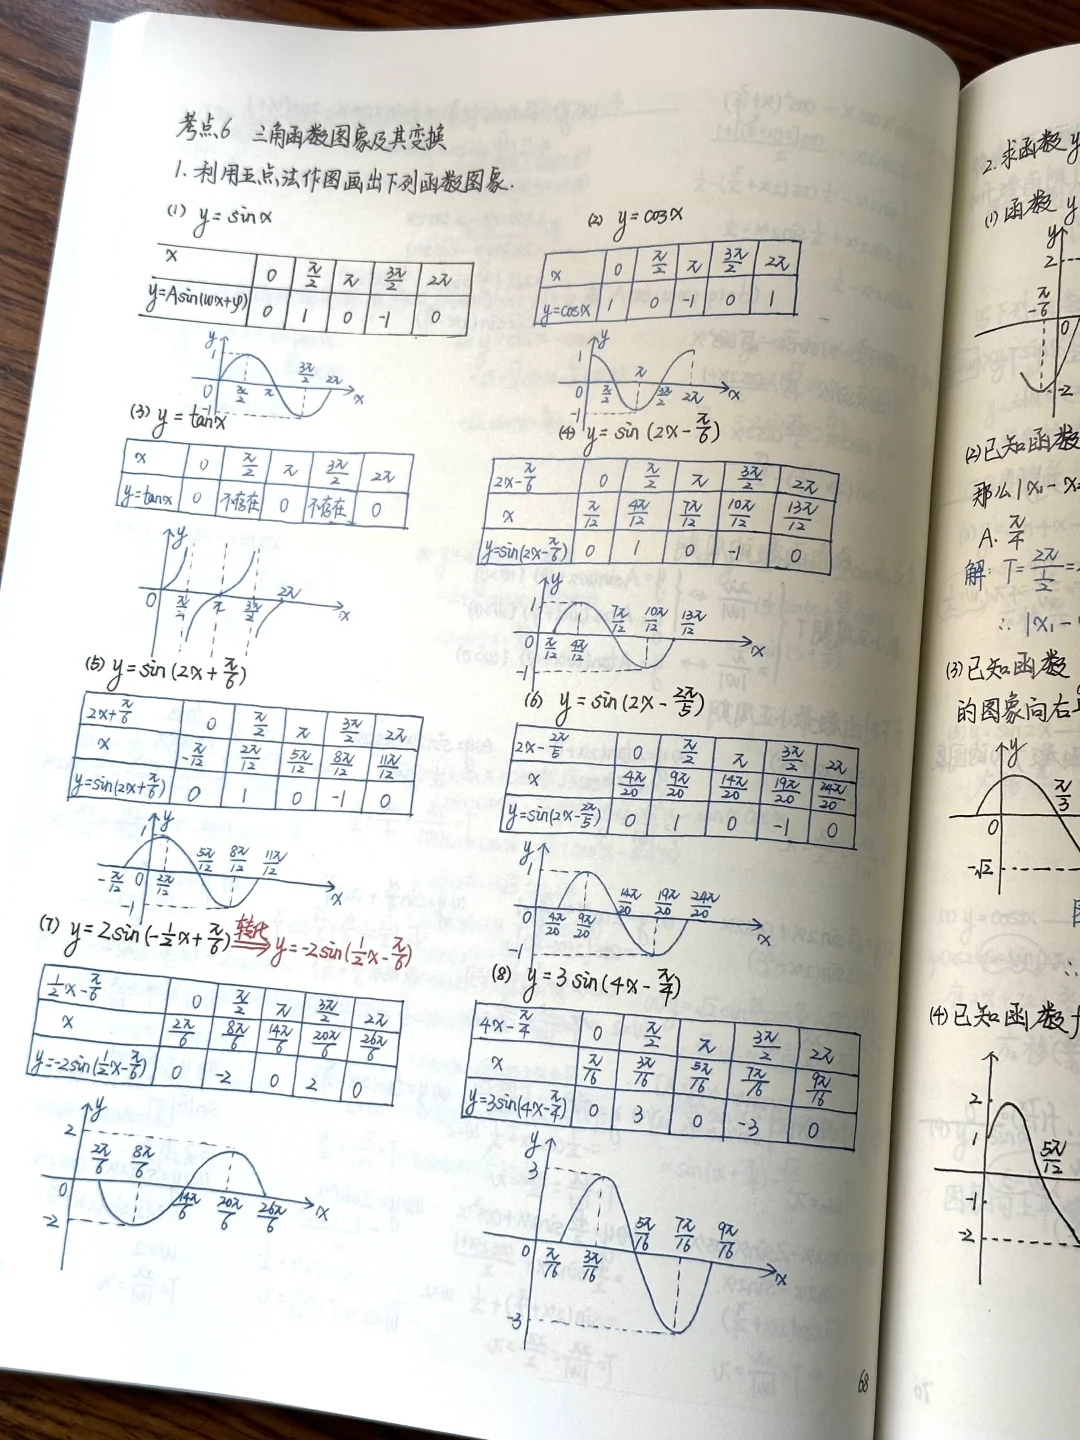 考点6 三角函数图象及其变换
1.利用五点法作图画出下列函数图象.
(1) y=sinx
x 0 π/2 π 3π/2 2π
y=Asin(ωx+φ) 0 1 0 -1 0
y 1 0 -1 π/2 π 3π/2 2π x
(2) y=cosx
x 0 π/2 π 3π/2 2π
y=cosx 1 0 -1 0 1
y 1 0 -1 π/2 π 3π/2 2π x
(3) y=tanx
x 0 π/2 π 3π/2 2π
y=tanx 0 不存在 0 不存在 0
y 0 π/2 π 3π/2 2π x
(4) y=sin(2x-π/6)
2x-π/6 0 π/2 π 3π/2 2π
x π/12 4π/12 7π/12 10π/12 13π/12
y=sin(2x-π/6) 0 1 0 -1 0
y 1 0 -1 π/12 4π/12 7π/12 10π/12 13π/12 x
(5) y=sin(2x+π/6)
2x+π/6 0 π/2 π 3π/2 2π
x -π/12 2π/12 5π/12 8π/12 11π/12
y=sin(2x+π/6) 0 1 0 -1 0
y 1 0 -1 -π/12 2π/12 5π/12 8π/12 11π/12 x
(6) y=sin(2x-2π/5)
2x-2π/5 0 π/2 π 3π/2 2π
x 4π/20 9π/20 14π/20 19π/20 24π/20
y=sin(2x-2π/5) 0 1 0 -1 0
y 1 0 -1 4π/20 9π/20 14π/20 19π/20 24π/20 x
(7) y=2sin(-1/2x+π/6) 转化 y=-2sin(1/2x-π/6)
1/2x-π/6 0 π/2 π 3π/2 2π
x 2π/6 8π/6 14π/6 20π/6 26π/6
y=-2sin(1/2x-π/6) 0 -2 0 2 0
y 2 0 -2 2π/6 8π/6 14π/6 20π/6 26π/6 x
(8) y=3sin(4x-π/4)
4x-π/4 0 π/2 π 3π/2 2π
x π/16 3π/16 5π/16 7π/16 9π/16
y=3sin(4x-π/4) 0 3 0 -3 0
y 3 0 -3 π/16 3π/16 5π/16 7π/16 9π/16 x
68
2.求函数y
(1)函数y
y 2 -π/6 0 -2
(2)已知函数
那么|x₁-x₂
A. π/4
解: T=2π/(1/2)=
∴|x₁-
(3)已知函数
的图象向右
y 0 π/3 -√2
(4)已知函数f
2 1 -1 -2 5π/12